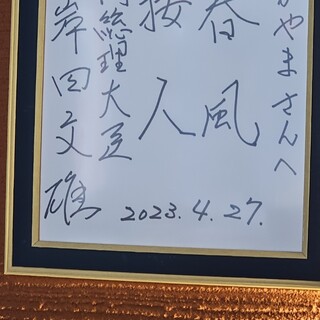 やまさんへ
春風
接人
総理大臣
岸田文雄
2023.4.27.